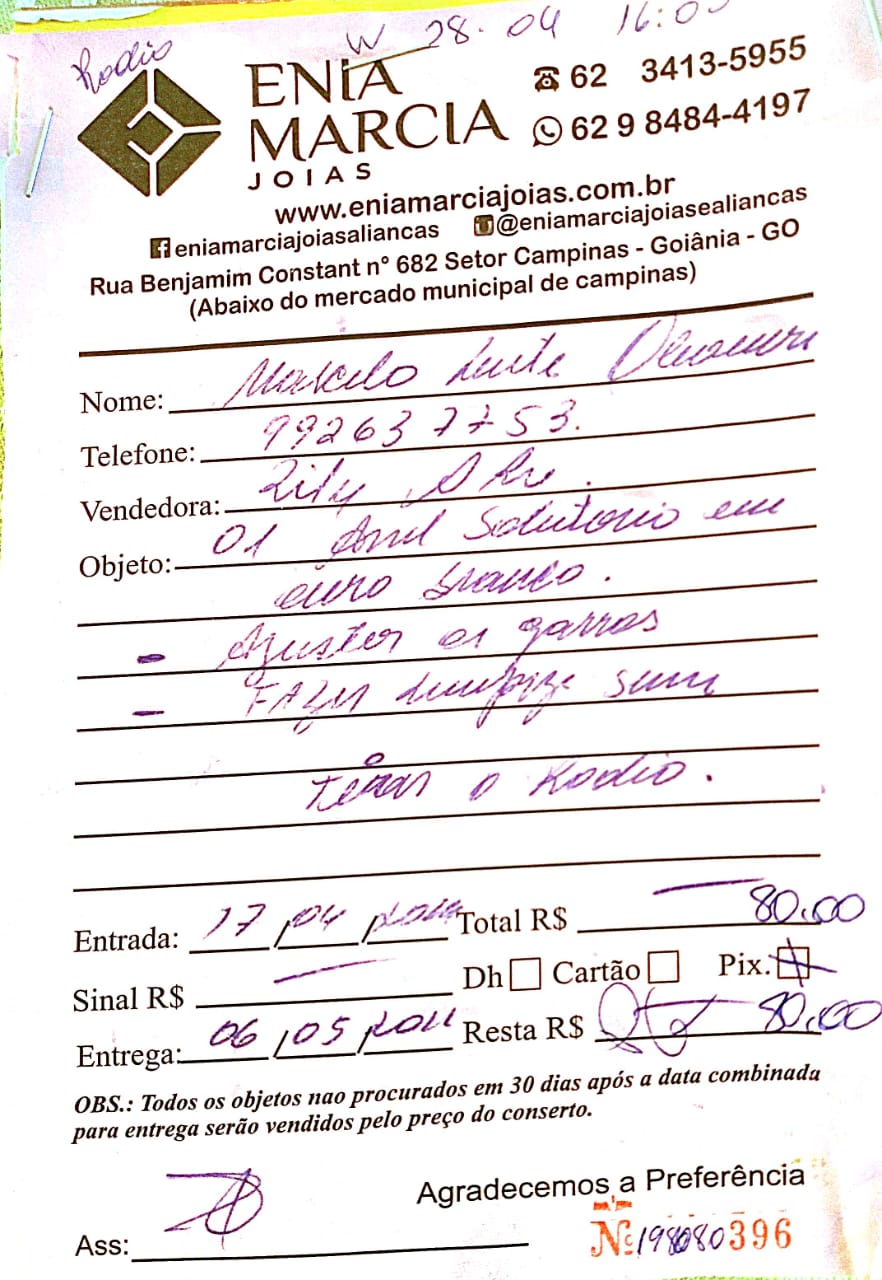 Rodio
W 28.04 16:0
ENIA
MARCIA
JOIAS
62 3413-5955
62 9 8484-4197
www.eniamarciajoias.com.br
eniamarciajoiasaliancas @eniamarciajoiasealiancas
Rua Benjamim Constant n° 682 Setor Campinas - Goiânia - GO
(Abaixo do mercado municipal de campinas)
Nome: Marcelo Leite
Telefone: 992637753.
Vendedora:
Objeto: 01 Anel Solitario em
ouro branco.
- Ajustar as garras
- Fazer limpeza sem
Tirar o Rodio.
Entrada: 17/04/ Total R$ 80,00
Sinal R$ — Dh Cartão Pix.
Entrega: 06/05/ Resta R$ 80,00
OBS.: Todos os objetos nao procurados em 30 dias após a data combinada
para entrega serão vendidos pelo preço do conserto.
Agradecemos a Preferência
Ass:
Nº 396